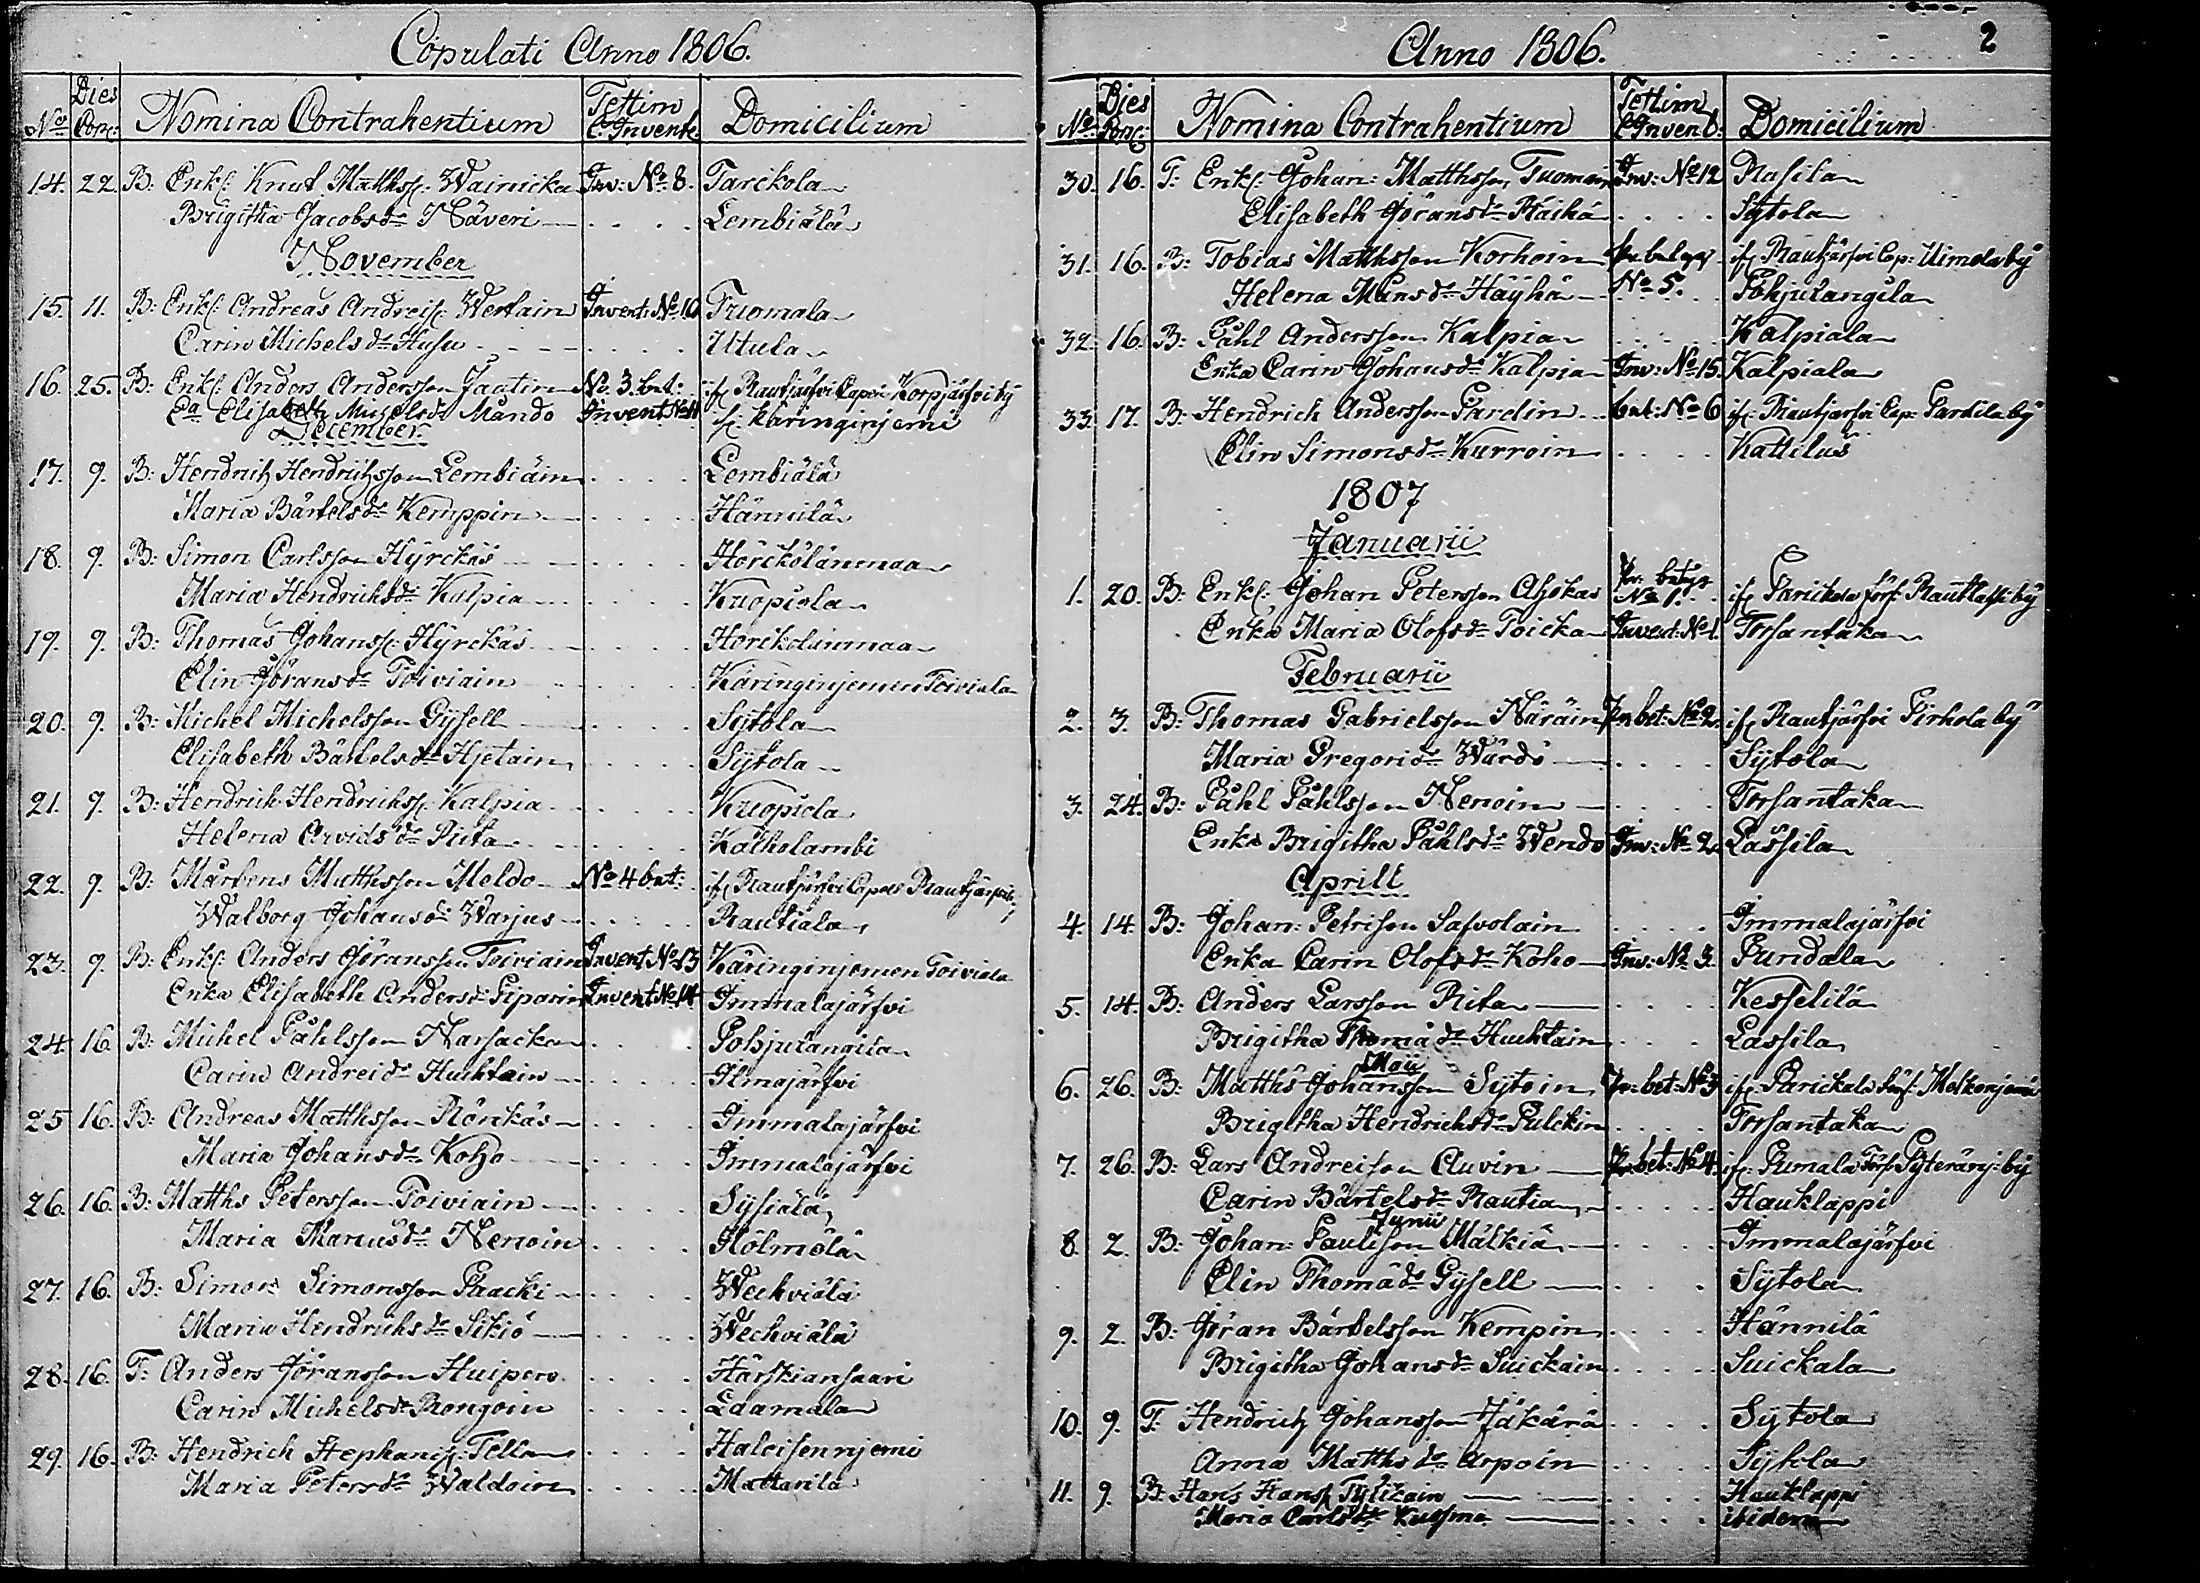 Copulati Anno 1806.
No Dies Cop: Nomina Contrahentium Testim & Invent: Domicilium
14. 22. B: Enkl: Knut Matthss: Wainicka Inv: No 8. Tarckola
Brigitha Jacobsdr Näveri Lembiälä
November
15. 11. B: Enkl: Andreas Andreiss: Wertain Invent: No 10 Tuomala
Carin Michelsdr Husu Utula
16. 25. B: Enkl: Anders Andersson Jaatin No 3. bet: if: Rautjärfvi Capell Korpjärfvi by
Ea Elisabeth Michelsdr Mändo Invent No 11 if: Karinginjemi
December
17. 9. B: Hendrich Hendrichsson Lembiäin Lembiälä
Maria Bärtelsdr Kemppin Hännilä
18. 9. B: Simon Carlsson Hyrckäs Hörckölänmaa
Maria Hendrichsdr Kalpia Kuopiola
19. 9. B: Thomas Johanss: Hyrckäs Hörckölänmaa
Elin Göransdr Toiviain Käringinjemen Toiviala
20. 9. B: Michel Michelsson Gyssell Sytola
Elisabeth Bärtelsdr Hjetain Sytola
21. 9. B: Hendrich Hendrichss: Kalpia Kuopiola
Helena Arvidsdr Rita Kälkolambi
22. 9. B: Mårtens Matthsson Meldo No 4 bet: if: Rautjärfvi Capell Rautjärfvi by
Walborg Johansdr Warjus Rautiala
23. 9. B: Enkl: Anders Göransson Toiviain Invent No 13 Käringinjemen Toiviala
Enka Elisabeth Andersdr Piparin Invent No 14 Immalajärfvi
24. 16. B: Michel Påhlsson Narsacka Pohjulangila
Carin Andreidr Huchtain Ilmajärfvi
25 16. B: Andreas Matthsson Rönckäs Immalajärfvi
Maria Johansdr Koho Immalajärfvi
26. 16. B: Matths Petersson Toiviain Sysiälä
Maria Marcusdr Nenoin Hölmölä
27. 16. B: Simon Simonsson Pracki Wechviälä
Maria Hendrichsdr Sikiö Wechviälä
28. 16. F: Anders Göransson Huipero Härskiansaari
Carin Michelsdr Rongoin Laamala
29. 16. B: Hendrich Stephaniss: Tella Haloisenniemi
Maria Petersdr Waldoin Mattarila
Anno 1806. 2
No Dies Cop: Nomina Contrahentium Testim & Invent: Domicilium
30. 16. F: Enkl: Johan: Matthsson Tuomoin Inv: No 12 Rasila
Elisabeth Göransdr Räihä Sytola
31. 16. B: Tobias Matthsson Korhoin Pr betyg if: Rautjärfvi Cap: Uimola by
Helena Månsdr Häyhä No 5. Pohjulangila
32. 16. B: Påhl Andersson Kalpia Kalpiala
Enka Carin Johansdr Kalpia Inv: No 15. Kalpiala
33. 17. B: Hendrich Andersson Pardin bet: No 6 if: Rautjärfvi Cap: Pardila by
Elin Simonsdr Kurroin Kattilus
1807
Januarii
1. 20. B: Enkl: Johan Petersson Ahokas Pr: betyg No 1. if: Parickala Förs: Rauttalaks by
Enka Maria Olofsdr Toicka Invent: No 1. Torsantaka
Februarii
2. 3. B: Thomas Gabrielsson Näräin Pr bet: No 2. if: Rautjärfvi Pirhola by
Maria Gregoridr Wärdö Sytola
3. 24. B: Påhl Påhlsson Nenoin Torsantaka
Enka Brigitha Påhlsdr Wendo Inv: No 2. Lassila
Aprill
4. 14. B: Johan: Petrison Safvolain Immalajärfvi
Enka Carin Olofsdr Koho Inv: No 3. Pundala
5. 14. B: Anders Larsson Rita Kesselilä
Brigitha Thomædr Huchtain Lassila
Maii
6. 26. B: Matths Johansson Sytoin Pr: bet: No 3 if: Parickala Förs: Melkoniemi
Brigitha Hendrichsdr Pulckin Torsantaka
7. 26. B: Lars Andreison Auvin Pr bet: No 4. if: Pumala Förs: Pyteräisj: by
Carin Bärtelsdr Rautia Hauklappi
Junii
8. 2. B: Johan: Paulison Mälkiä Immalajärfvi
Elin Thomædr Gysell Sytola
9. 2. B: Göran Bärtelsson Kempin Hännilä
Brigitha Johansdr Suickain Suickala
10. 9. F: Hendrich Johansson Jäkärä Sytola
Anna Matthsdr Arpoin Sytola
11. 9. B: Hans Hanss: Tylikain Hauklappi
Maria Carlsdr Kussma ibidem